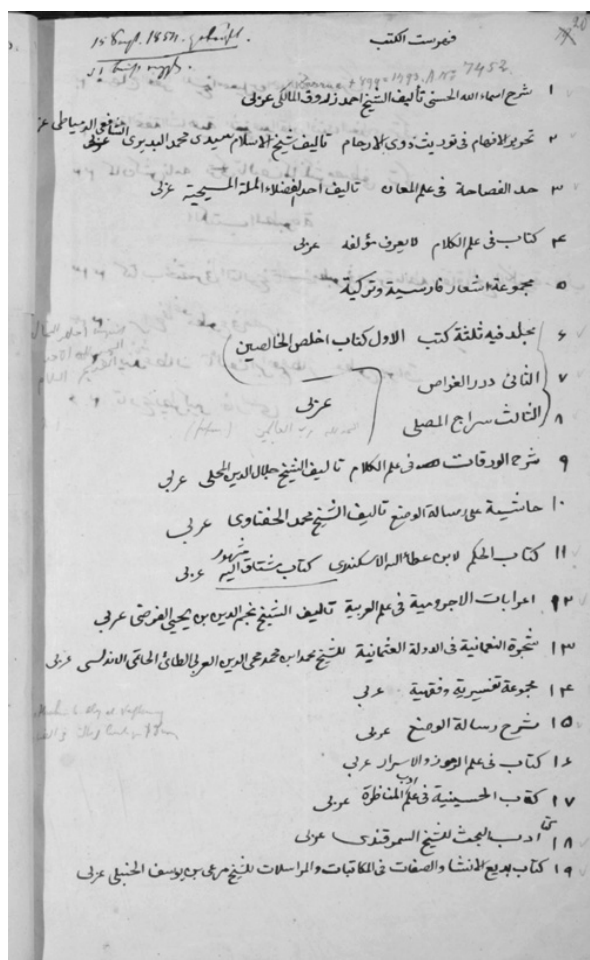 20
15 Sept. 1854.
فهرست الكتب
7452
١ شرح اسماء الله الحسنى تأليف الشيخ احمد زروق المالكى عربى
٢ تحرير الافهام فى توريث ذوى الارحام تاليف شيخ الاسلام سيدى محمد البديرى الشافعى الدمياطى عربى
٣ حد الفصاحة فى علم المعان تاليف أحد الفضلاء الملة المسيحية عربى
٤ كتاب فى علم الكلام لا يعرف مؤلفه عربى
٥ مجموعة اشعار فارسية وتركية
٦ مجلد فيه ثلثة كتب الاول كتاب اخلص الخالصين
٧ الثانى درر الغواص
عربى
٨ الثالث سراج المصلى
٩ شرح الورقات فى علم الكلام تاليف الشيخ جلال الدين المحلى عربى
١٠ حاشية على رسالة الوضع تاليف الشيخ محمد الحفناوى عربى
١١ كتاب الحكم لابن عطا اله الاسكندرى كتاب مشتاق اليه مشهور عربى
١٢ اعرابات الاجرومية فى علم العربية تاليف الشيخ نجم الدين بن يحيى الفرضى عربى
١٣ شجرة النعمانية فى الدولة العثمانية للشيخ محمد ابن محمد محى الدين العربى الطائى الحاتمى الاندلسى عربى
١٤ مجموعة تفسيرية وفقهية عربى
١٥ شرح رسالة الوضع عربى
١٦ كتاب فى علم الرموز والاسرار عربى
١٧ كتاب الحسينية فى علم ادب المناظرة عربى
١٨ كتا ادب البحث للشيخ السمرقندى عربى
١٩ كتاب بديع الانشا والصفات فى المكاتبات والمراسلات للشيخ مرعى بن يوسف الحنبلى عربى